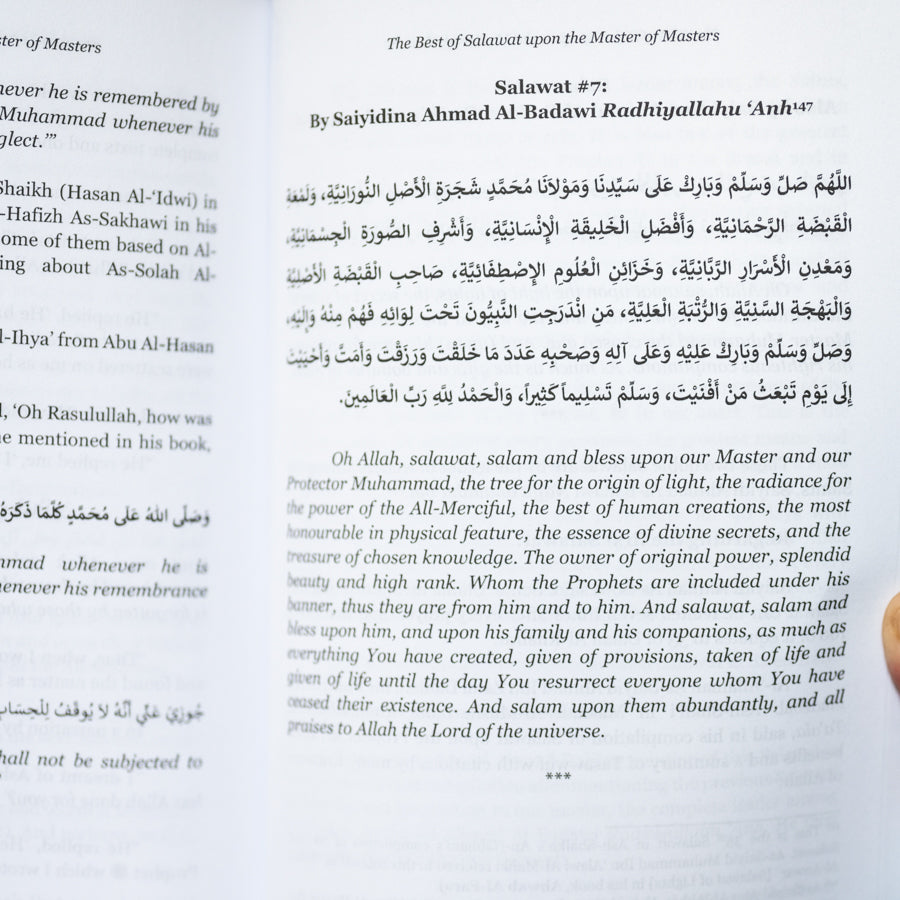 ter of Masters
never he is remembered by
Muhammad whenever his
glect.’”
Shaikh (Hasan Al-‘Idwi) in
-Hafizh As-Sakhawi in his
ome of them based on Al-
ing about As-Solah Al-
l-Ihya’ from Abu Al-Hasan
l, ‘Oh Rasulullah, how was
e mentioned in his book,
وَصَلَّى اللهُ عَلَى مُحَمَّدٍ كُلَّمَا ذَكَرَهُ
mmad whenever he is
enever his remembrance
جُوزِيَ عَنِّي أَنَّهُ لَا يُوقَفُ لِلْحِسَابِ
hall not be subjected to
The Best of Salawat upon the Master of Masters
Salawat #7:
By Saiyidina Ahmad Al-Badawi Radhiyallahu ‘Anh¹⁴⁷
اللَّهُمَّ صَلِّ وَسَلِّمْ وَبَارِكْ عَلَى سَيِّدِنَا وَمَوْلَانَا مُحَمَّدٍ شَجَرَةِ الْأَصْلِ النُّورَانِيَّةِ، وَلَمْعَةِ
الْقَبْضَةِ الرَّحْمَانِيَّةِ، وَأَفْضَلِ الْخَلِيقَةِ الْإِنْسَانِيَّةِ، وَأَشْرَفِ الصُّورَةِ الْجِسْمَانِيَّةِ،
وَمَعْدِنِ الْأَسْرَارِ الرَّبَّانِيَّةِ، وَخَزَائِنِ الْعُلُومِ الإِصْطَفَائِيَّةِ، صَاحِبِ الْقَبْضَةِ الْأَصْلِيَّةِ
وَالْبَهْجَةِ السَّنِيَّةِ وَالرُّتْبَةِ الْعَلِيَّةِ، مَنِ انْدَرَجَتِ النَّبِيُّونَ تَحْتَ لِوَائِهِ فَهُمْ مِنْهُ وَإِلَيْهِ،
وَصَلِّ وَسَلِّمْ وَبَارِكْ عَلَيْهِ وَعَلَى آلِهِ وَصَحْبِهِ عَدَدَ مَا خَلَقْتَ وَرَزَقْتَ وَأَمَتَّ وَأَحْيَيْتَ
إِلَى يَوْمِ تَبْعَثُ مَنْ أَفْنَيْتَ، وَسَلِّمْ تَسْلِيماً كَثِيراً، وَالْحَمْدُ لِلَّهِ رَبِّ الْعَالَمِينَ.
Oh Allah, salawat, salam and bless upon our Master and our
Protector Muhammad, the tree for the origin of light, the radiance for
the power of the All-Merciful, the best of human creations, the most
honourable in physical feature, the essence of divine secrets, and the
treasure of chosen knowledge. The owner of original power, splendid
beauty and high rank. Whom the Prophets are included under his
banner, thus they are from him and to him. And salawat, salam and
bless upon him, and upon his family and his companions, as much as
everything You have created, given of provisions, taken of life and
given of life until the day You resurrect everyone whom You have
ceased their existence. And salam upon them abundantly, and all
praises to Allah the Lord of the universe.
***